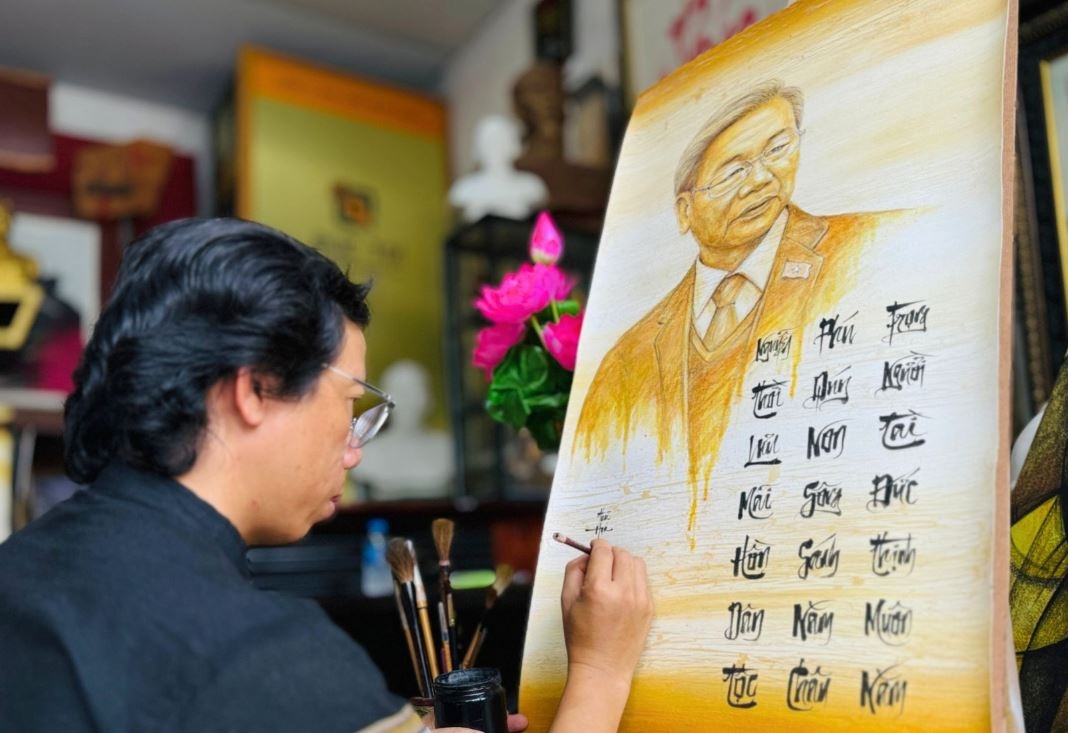 Nguyễn Thời Lưu Mãi Hồn Dân Tộc
Phú Dựng Non Sông Sánh Năm Châu
Trọng Người Tài Đức Thịnh Muôn Năm